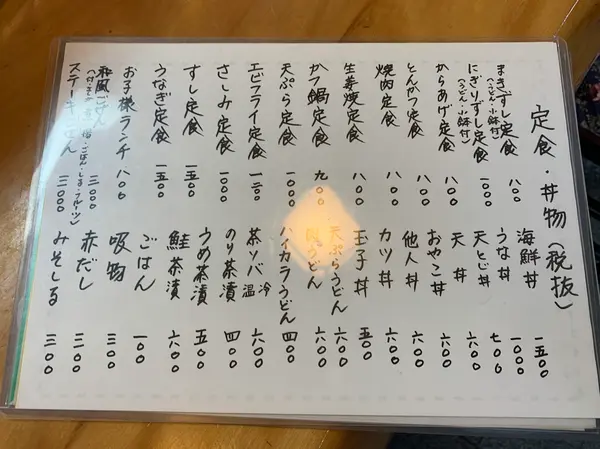 定食・丼物（税抜）
まきずし定食 八〇〇
（うどん・小鉢付）
にぎりずし定食 一〇〇〇
（うどん・小鉢付）
からあげ定食 八〇〇
とんかつ定食 八〇〇
焼肉定食 八〇〇
生姜焼定食 八〇〇
かつ鍋定食 九〇〇
天ぷら定食 一〇〇〇
エビフライ定食
さしみ定食 一〇〇〇
すし定食 一五〇〇
うなぎ定食 一五〇〇
お子様ランチ 八〇〇
和風ごぜん 三〇〇〇
ごはん・しる・フルーツ）
ステーキ 三〇〇〇
海鮮丼 一五〇〇
うな丼 一〇〇〇
天とじ丼 七〇〇
天丼 六〇〇
おやこ丼 六〇〇
他人丼 六〇〇
カツ丼 六〇〇
玉子丼 五〇〇
天ぷらうどん 六〇〇
うどん 六〇〇
ハイカラうどん 四〇〇
茶ソバ 冷 温 六〇〇
のり茶漬 四〇〇
うめ茶漬 五〇〇
鮭茶漬 六〇〇
ごはん 一〇〇
吸物 三〇〇
赤だし 三〇〇
みそしる 三〇〇